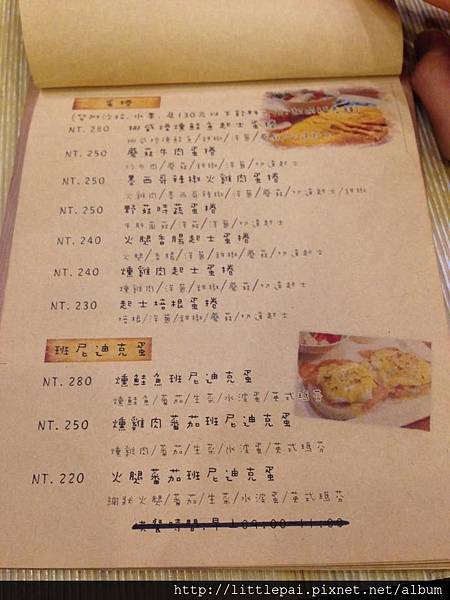 蛋捲
(皆附沙拉.水果.及130元以下飲料
NT. 280 挪威煙燻鮭魚起士蛋捲
NT. 250 蘑菇牛肉蛋捲
炒牛肉/蘑菇/甜椒/洋蔥/切達起士
NT. 250 墨西哥辣椒火雞肉蛋捲
火雞肉/墨西哥辣椒/洋蔥/蘑菇/切達起士/甜椒
NT. 250 野菇時蔬蛋捲
牛肝菌菇/洋菇/洋蔥/切達起士
NT. 240 火腿香腸起士蛋捲
火腿/香腸/洋蔥/甜椒/蘑菇/切達起士
NT. 240 燻雞肉起士蛋捲
燻雞肉/洋蔥/甜椒/蘑菇/切達起士
NT. 230 起士培根蛋捲
培根/洋蔥/甜椒/蘑菇/切達起士
班尼迪克蛋
NT. 280 燻鮭魚班尼迪克蛋
燻鮭魚/蕃茄/生菜/水波蛋/英式瑪芬
NT. 250 燻雞肉蕃茄班尼迪克蛋
燻雞肉/蕃茄/生菜/水波蛋/英式瑪芬
NT. 220 火腿蕃茄班尼迪克蛋
火腿/蕃茄/生菜/水波蛋/英式瑪芬
供餐時間:早上09:00-11:00
http://littlepai.pixnet.net/album